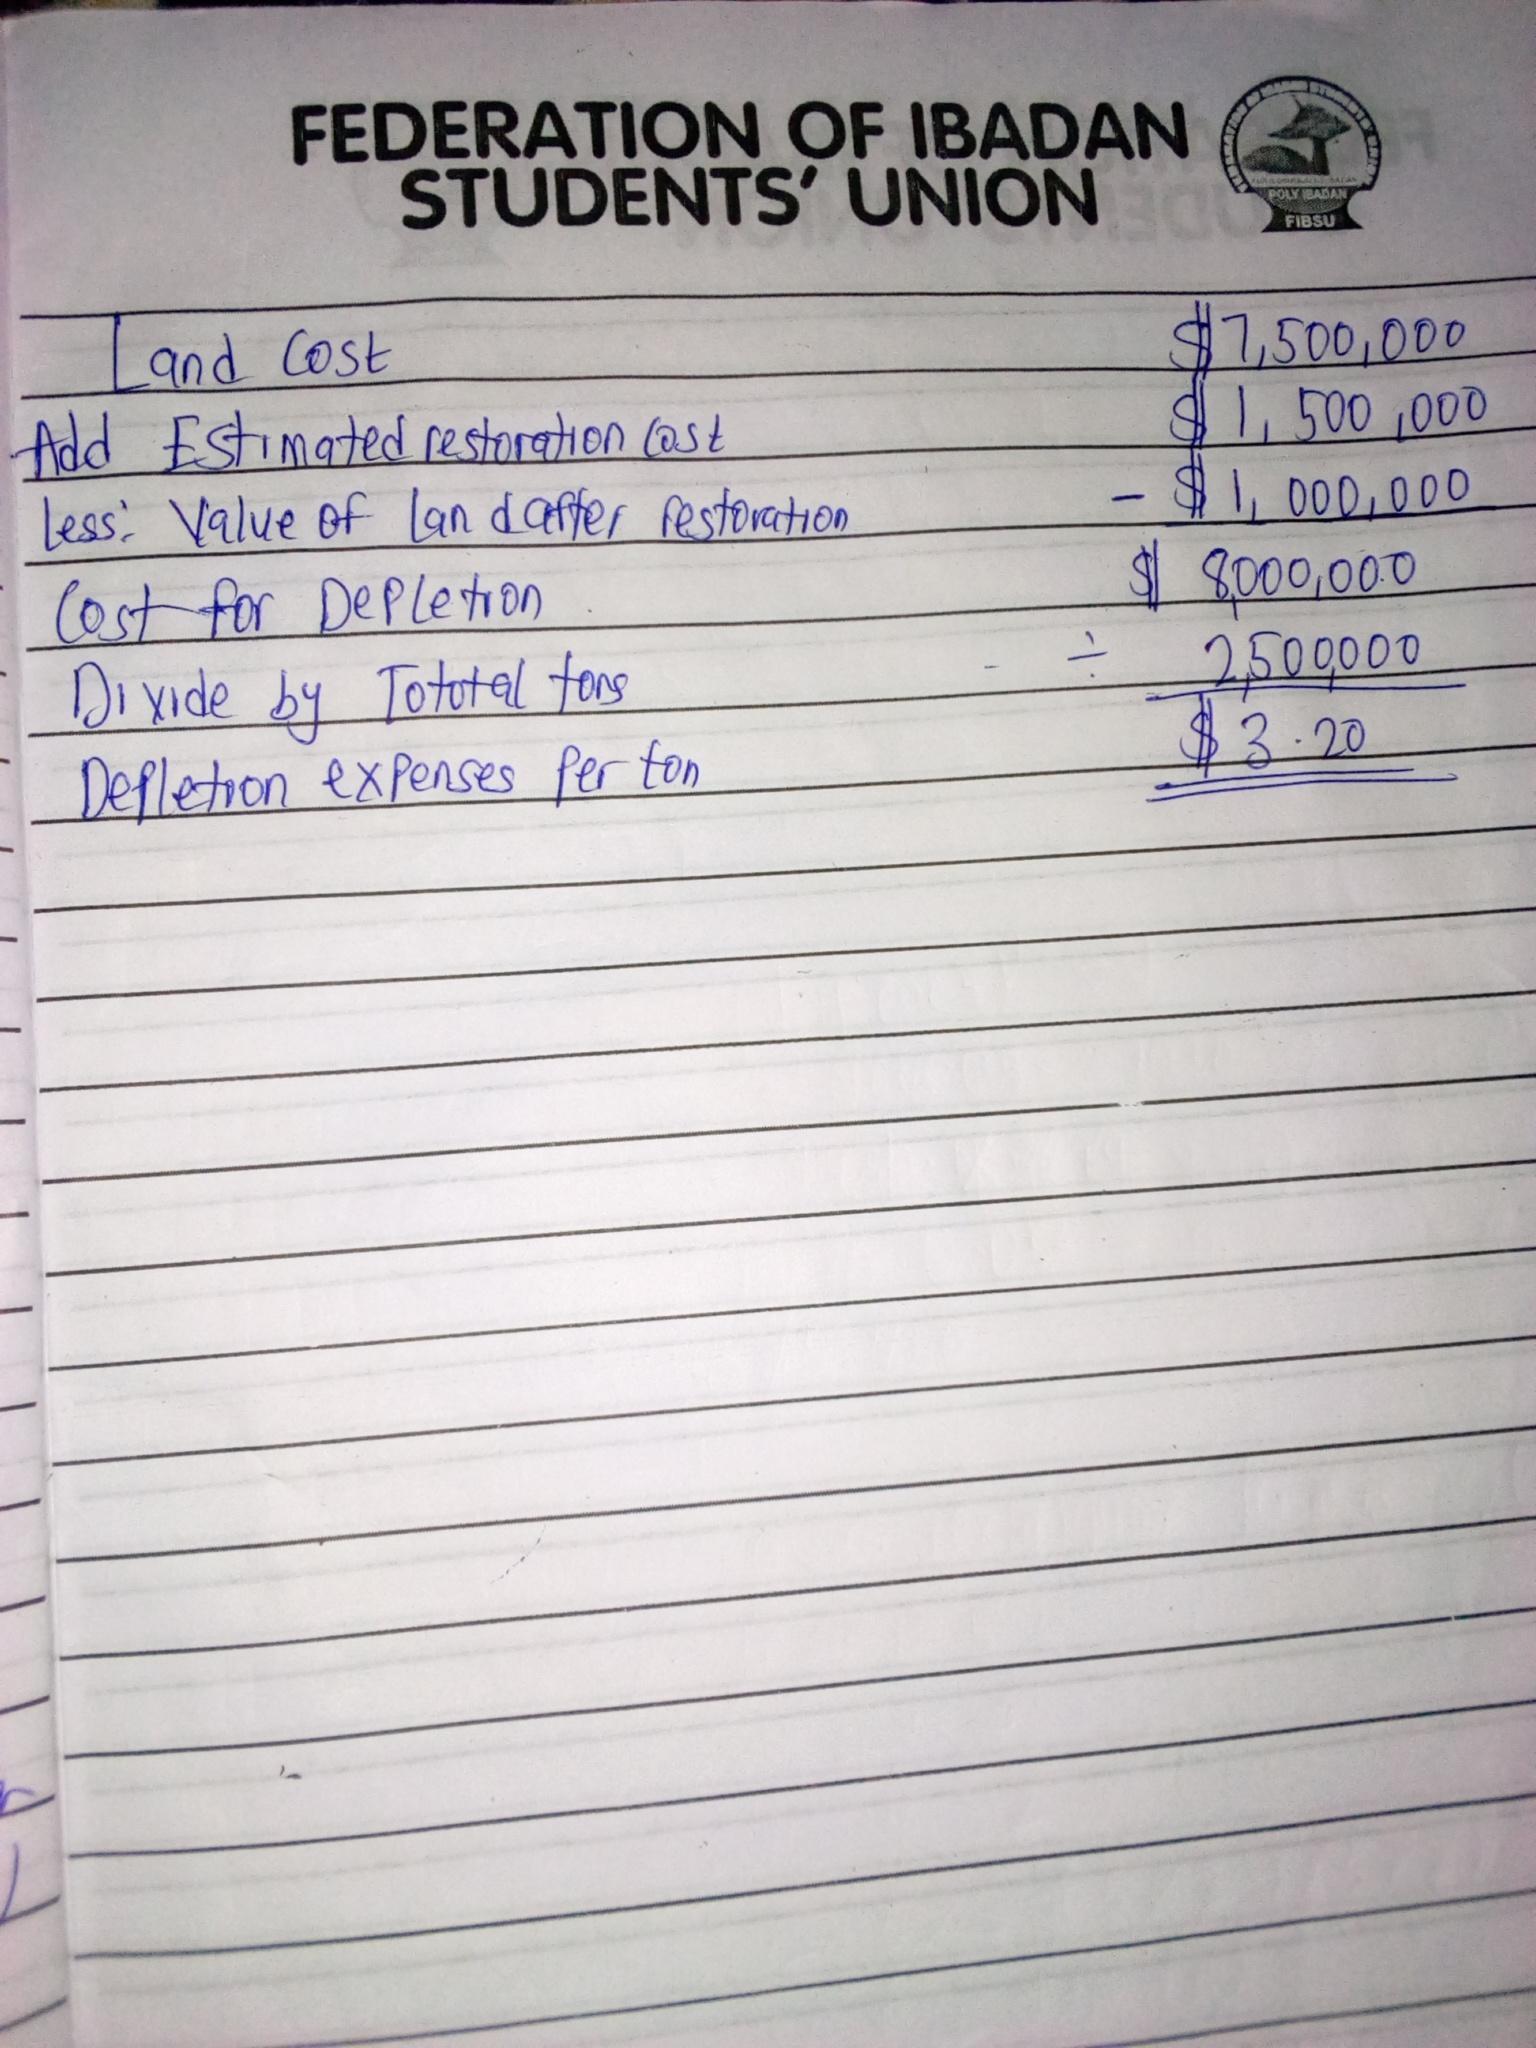 FEDERATION OF IBADAN
STUDENTS' UNION
POLY IBADAN
FIBSU
Land Cost $7,500,000
Add Estimated restoration Cost $1,500,000
Less: Value of Land after restoration - $1,000,000
Cost for Depletion $8,000,000
Divide by Tototal tons ÷ 2,500,000
Depletion expenses per ton $3.20